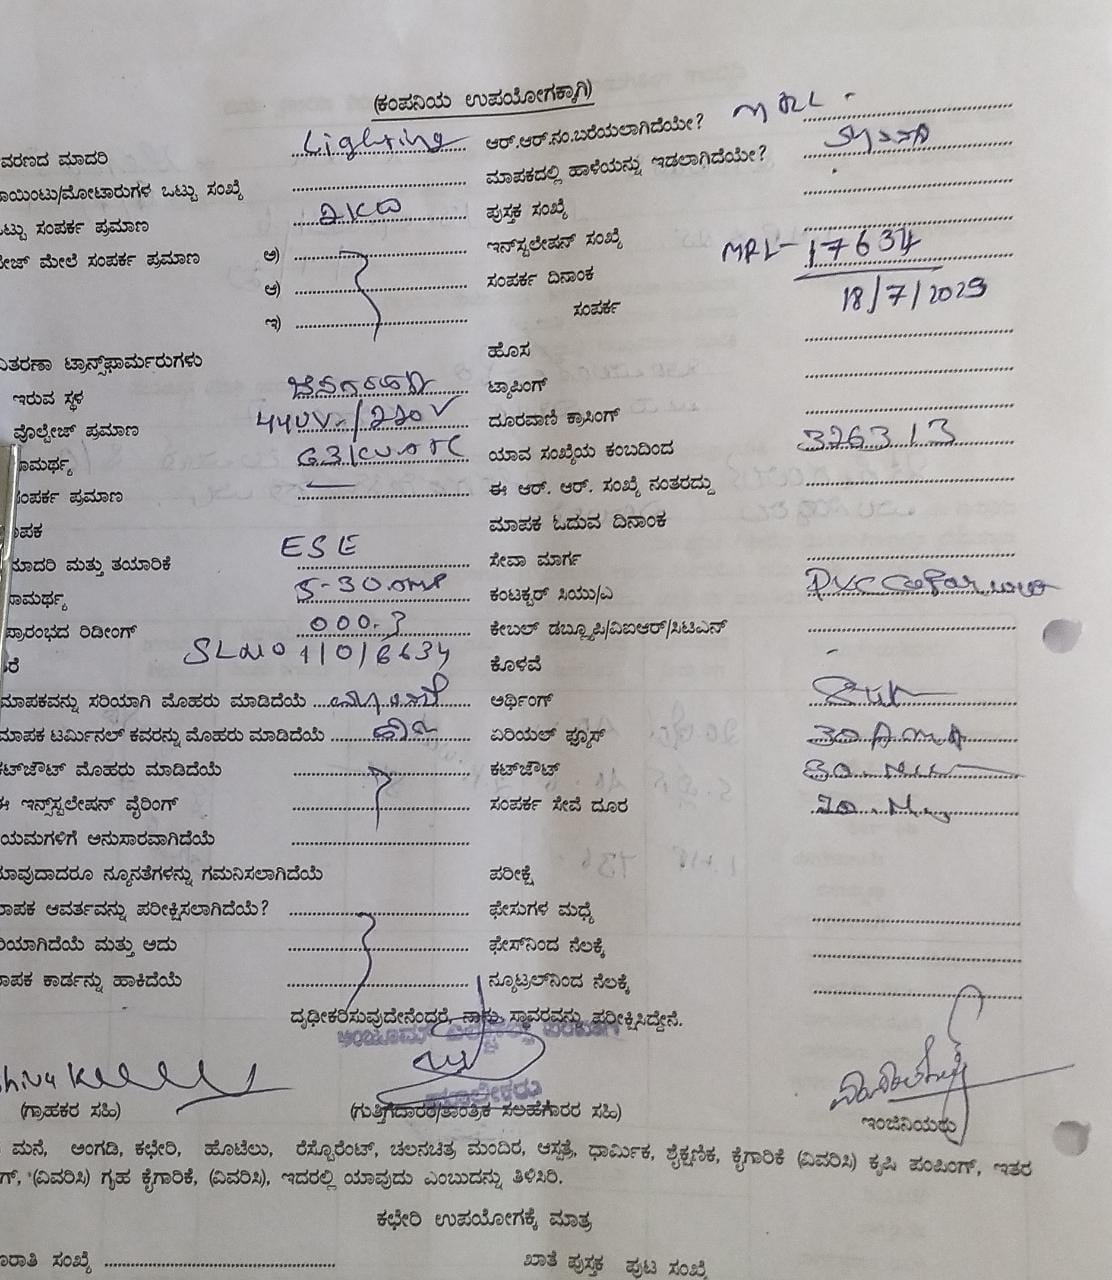 (ಕಂಪನಿಯ ಉಪಯೋಗಕ್ಕಾಗಿ)
ವರಣದ ಮಾದರಿ Lighting ಆರ್.ಆರ್.ನಂ.ಬರೆಯಲಾಗಿದೆಯೇ? MRL -
ಾಯಿಂಟು/ಮೋಟಾರುಗಳ ಒಟ್ಟು ಸಂಖ್ಯೆ ಮಾಪಕದಲ್ಲಿ ಹಾಳೆಯನ್ನು ಇಡಲಾಗಿದೆಯೇ?
ಒಟ್ಟು ಸಂಪರ್ಕ ಪ್ರಮಾಣ 2KW ಪುಸ್ತಕ ಸಂಖ್ಯೆ
ೇಜ್ ಮೇಲೆ ಸಂಪರ್ಕ ಪ್ರಮಾಣ ಅ) ಇನ್‌ಸ್ಟಲೇಷನ್ ಸಂಖ್ಯೆ MRL-17634
ಆ) ಸಂಪರ್ಕ ದಿನಾಂಕ 18/7/2023
ಇ) ಸಂಪರ್ಕ
ವಿತರಣಾ ಟ್ರಾನ್ಸ್‌ಫಾರ್ಮರುಗಳು ಹೊಸ
ಇರುವ ಸ್ಥಳ ಟ್ಯಾಪಿಂಗ್
ವೊಲ್ಟೇಜ್ ಪ್ರಮಾಣ 440V/220V ದೂರವಾಣಿ ಕ್ರಾಸಿಂಗ್
ಾಮರ್ಥ್ಯ 63KVA TC ಯಾವ ಸಂಖ್ಯೆಯ ಕಂಬದಿಂದ 326313
ಸಂಪರ್ಕ ಪ್ರಮಾಣ ಈ ಆರ್. ಆರ್. ಸಂಖ್ಯೆ ನಂತರದ್ದು
ಾಪಕ ಮಾಪಕ ಓದುವ ದಿನಾಂಕ
ಮಾದರಿ ಮತ್ತು ತಯಾರಿಕೆ ESE ಸೇವಾ ಮಾರ್ಗ
ಾಮರ್ಥ್ಯ 5-30 amp ಕಂಟಕ್ಟರ್ ಸಿಯು/ಎ PVC
ಪ್ರಾರಂಭದ ರಿಡೀಂಗ್ 000.3 ಕೇಬಲ್ ಡಬ್ಲ್ಯೂಪಿ/ವಿಐಆರ್/ಸಿಟಿಎಸ್
ರೆ SLNO 11016634 ಕೊಳವೆ -
ಮಾಪಕವನ್ನು ಸರಿಯಾಗಿ ಮೊಹರು ಮಾಡಿದೆಯೆ ಅರ್ಥಿಂಗ್
ಮಾಪಕ ಟರ್ಮಿನಲ್ ಕವರನ್ನು ಮೊಹರು ಮಾಡಿದೆಯೆ ಏರಿಯಲ್ ಫ್ಯೂಸ್ 30 Amp
ಕಟ್‌ಔಟ್ ಮೊಹರು ಮಾಡಿದೆಯೆ ಕಟ್‌ಔಟ್
ಈ ಇನ್‌ಸ್ಟಲೇಷನ್ ವೈರಿಂಗ್ ಸಂಪರ್ಕ ಸೇವೆ ದೂರ
ಯಮಗಳಿಗೆ ಅನುಸಾರವಾಗಿದೆಯೆ
ಯಾವುದಾದರೂ ನ್ಯೂನತೆಗಳನ್ನು ಗಮನಿಸಲಾಗಿದೆಯೆ ಪರೀಕ್ಷೆ
ಾಪಕ ಆವರ್ತವನ್ನು ಪರೀಕ್ಷಿಸಲಾಗಿದೆಯೆ? ಫೇಸುಗಳ ಮಧ್ಯೆ
ರಿಯಾಗಿದೆಯೆ ಮತ್ತು ಅದು ಫೇಸ್‌ನಿಂದ ನೆಲಕ್ಕೆ
ಾಪಕ ಕಾರ್ಡನ್ನು ಹಾಕಿದೆಯೆ ನ್ಯೂಟ್ರಲ್‌ನಿಂದ ನೆಲಕ್ಕೆ
ದೃಢೀಕರಿಸುವುದೇನೆಂದರೆ, ನಾನು ಸ್ಥಾವರವನ್ನು ಪರೀಕ್ಷಿಸಿದ್ದೇನೆ.
(ಗ್ರಾಹಕರ ಸಹಿ) (ಗುತ್ತಿಗೆದಾರರ/ತಾಂತ್ರಿಕ ಸಲಹೆಗಾರರ ಸಹಿ) ಇಂಜಿನಿಯರು
ಮನೆ, ಅಂಗಡಿ, ಕಛೇರಿ, ಹೊಟೆಲು, ರೆಸ್ಟೊರೆಂಟ್, ಚಲನಚಿತ್ರ ಮಂದಿರ, ಆಸ್ಪತ್ರೆ, ಧಾರ್ಮಿಕ, ಶೈಕ್ಷಣಿಕ, ಕೈಗಾರಿಕೆ (ವಿವರಿಸಿ) ಕೃಷಿ ಪಂಪಿಂಗ್, ಇತರ
ಗ್, (ವಿವರಿಸಿ) ಗೃಹ ಕೈಗಾರಿಕೆ, (ವಿವರಿಸಿ), ಇದರಲ್ಲಿ ಯಾವುದು ಎಂಬುದನ್ನು ತಿಳಿಸಿರಿ.
ಕಛೇರಿ ಉಪಯೋಗಕ್ಕೆ ಮಾತ್ರ
ರಾತಿ ಸಂಖ್ಯೆ ಖಾತೆ ಪುಸ್ತಕ ಪುಟ ಸಂಖ್ಯೆ